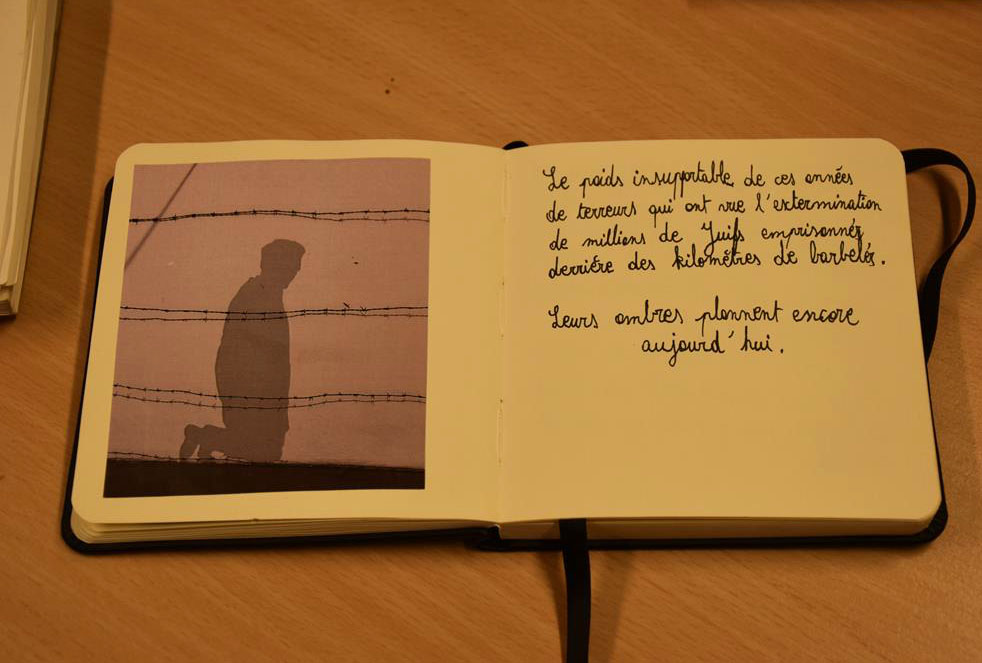 Le poids insupportable de ces années
de terreurs qui ont vue l'extermination
de millions de Juifs emprisonnés
derrière des kilomètres de barbelés.
Leurs ombres plannent encore
aujourd'hui.